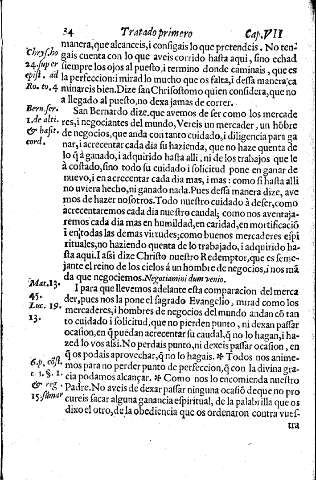 34 Tratado primero Cap. VII
manera, que alcanceis, i consigais lo que pretendeis. No ten-
gais cuenta con lo que aveis corrido hasta aqui, sino echad
siempre los ojos al puesto, i termino donde caminais, que es
la perfeccion: i mirad lo mucho que os falta, i dessa manera ca
minareis bien. Dize san Chrisostomo quien considera, que no
a llegado al puesto, no dexa jamas de correr.
San Bernardo dize, que avemos de ser como los mercade
res, i negociantes del mundo. Vereis un mercader, un hõbre
de negocios, que anda con tanto cuidado, i diligencia para ga
nar, i acrecentar cada dia su hazienda, que no haze quenta de
lo q̃ à ganado, i adquirido hasta alli, ni de los trabajos que le
à costado, sino todo su cuidado i solicitud pone en ganar de
nuevo, i en acrecentar cada dia mas, i mas: como si hasta alli
no uviera hecho, ni ganado nada. Pues dessa manera dize, ave
mos de hazer nosotros. Todo nuestro cuidado à de ser, como
acrecentaremos cada dia nuestro caudal; como nos aventaja-
remos cada dia mas en humildad, en caridad, en mortificació
i en todas las demas virtudes; como buenos mercaderes espi
rituales, no haziendo quenta de lo trabajado, i adquirido ha-
sta aqui. I asi dize Christo nuestro Redemptor, que es seme-
jante el reino de los cielos à un hombre de negocios, i nos mã
da que negociemos. Negotiamini dum venio.
I para que llevemos adelante esta comparacion del merca
der, pues nos la pone el sagrado Evangelio, mirad como los
mercaderes, i hombres de negocios del mundo andan cõ tan
to cuidado i solicitud, que no pierden punto, ni dexan passar
ocasion, en q̃ puedan acrecentar su caudal, q̃ no lo hagan, i ha-
zed lo vos assi. No perdais punto, ni dexeis passar ocasion, en
q̃ os podais aprovechar, q̃ no lo hagais. * Todos nos anime-
mos para no perder punto de perfeccion, q̃ con la divina gra-
cia podamos alcançar. * Como nos lo encomienda nuestro
Padre. No aveis de dexar passar ninguna ocasiõ de que no pro
cureis sacar alguna ganancia espiritual, de la palabrilla que os
dixo el otro, de la obediencia que os ordenaron contra vues-
tra
Chryso
24. super
epist. ad
Ro. to. 4
Bern. ser.
1. de alti-
& basit-
cord.
Mat. 13.
45.
Luc. 19.
13.
6. p. cõst.
c. 1. §. 1.
& reg.
15. sũmar